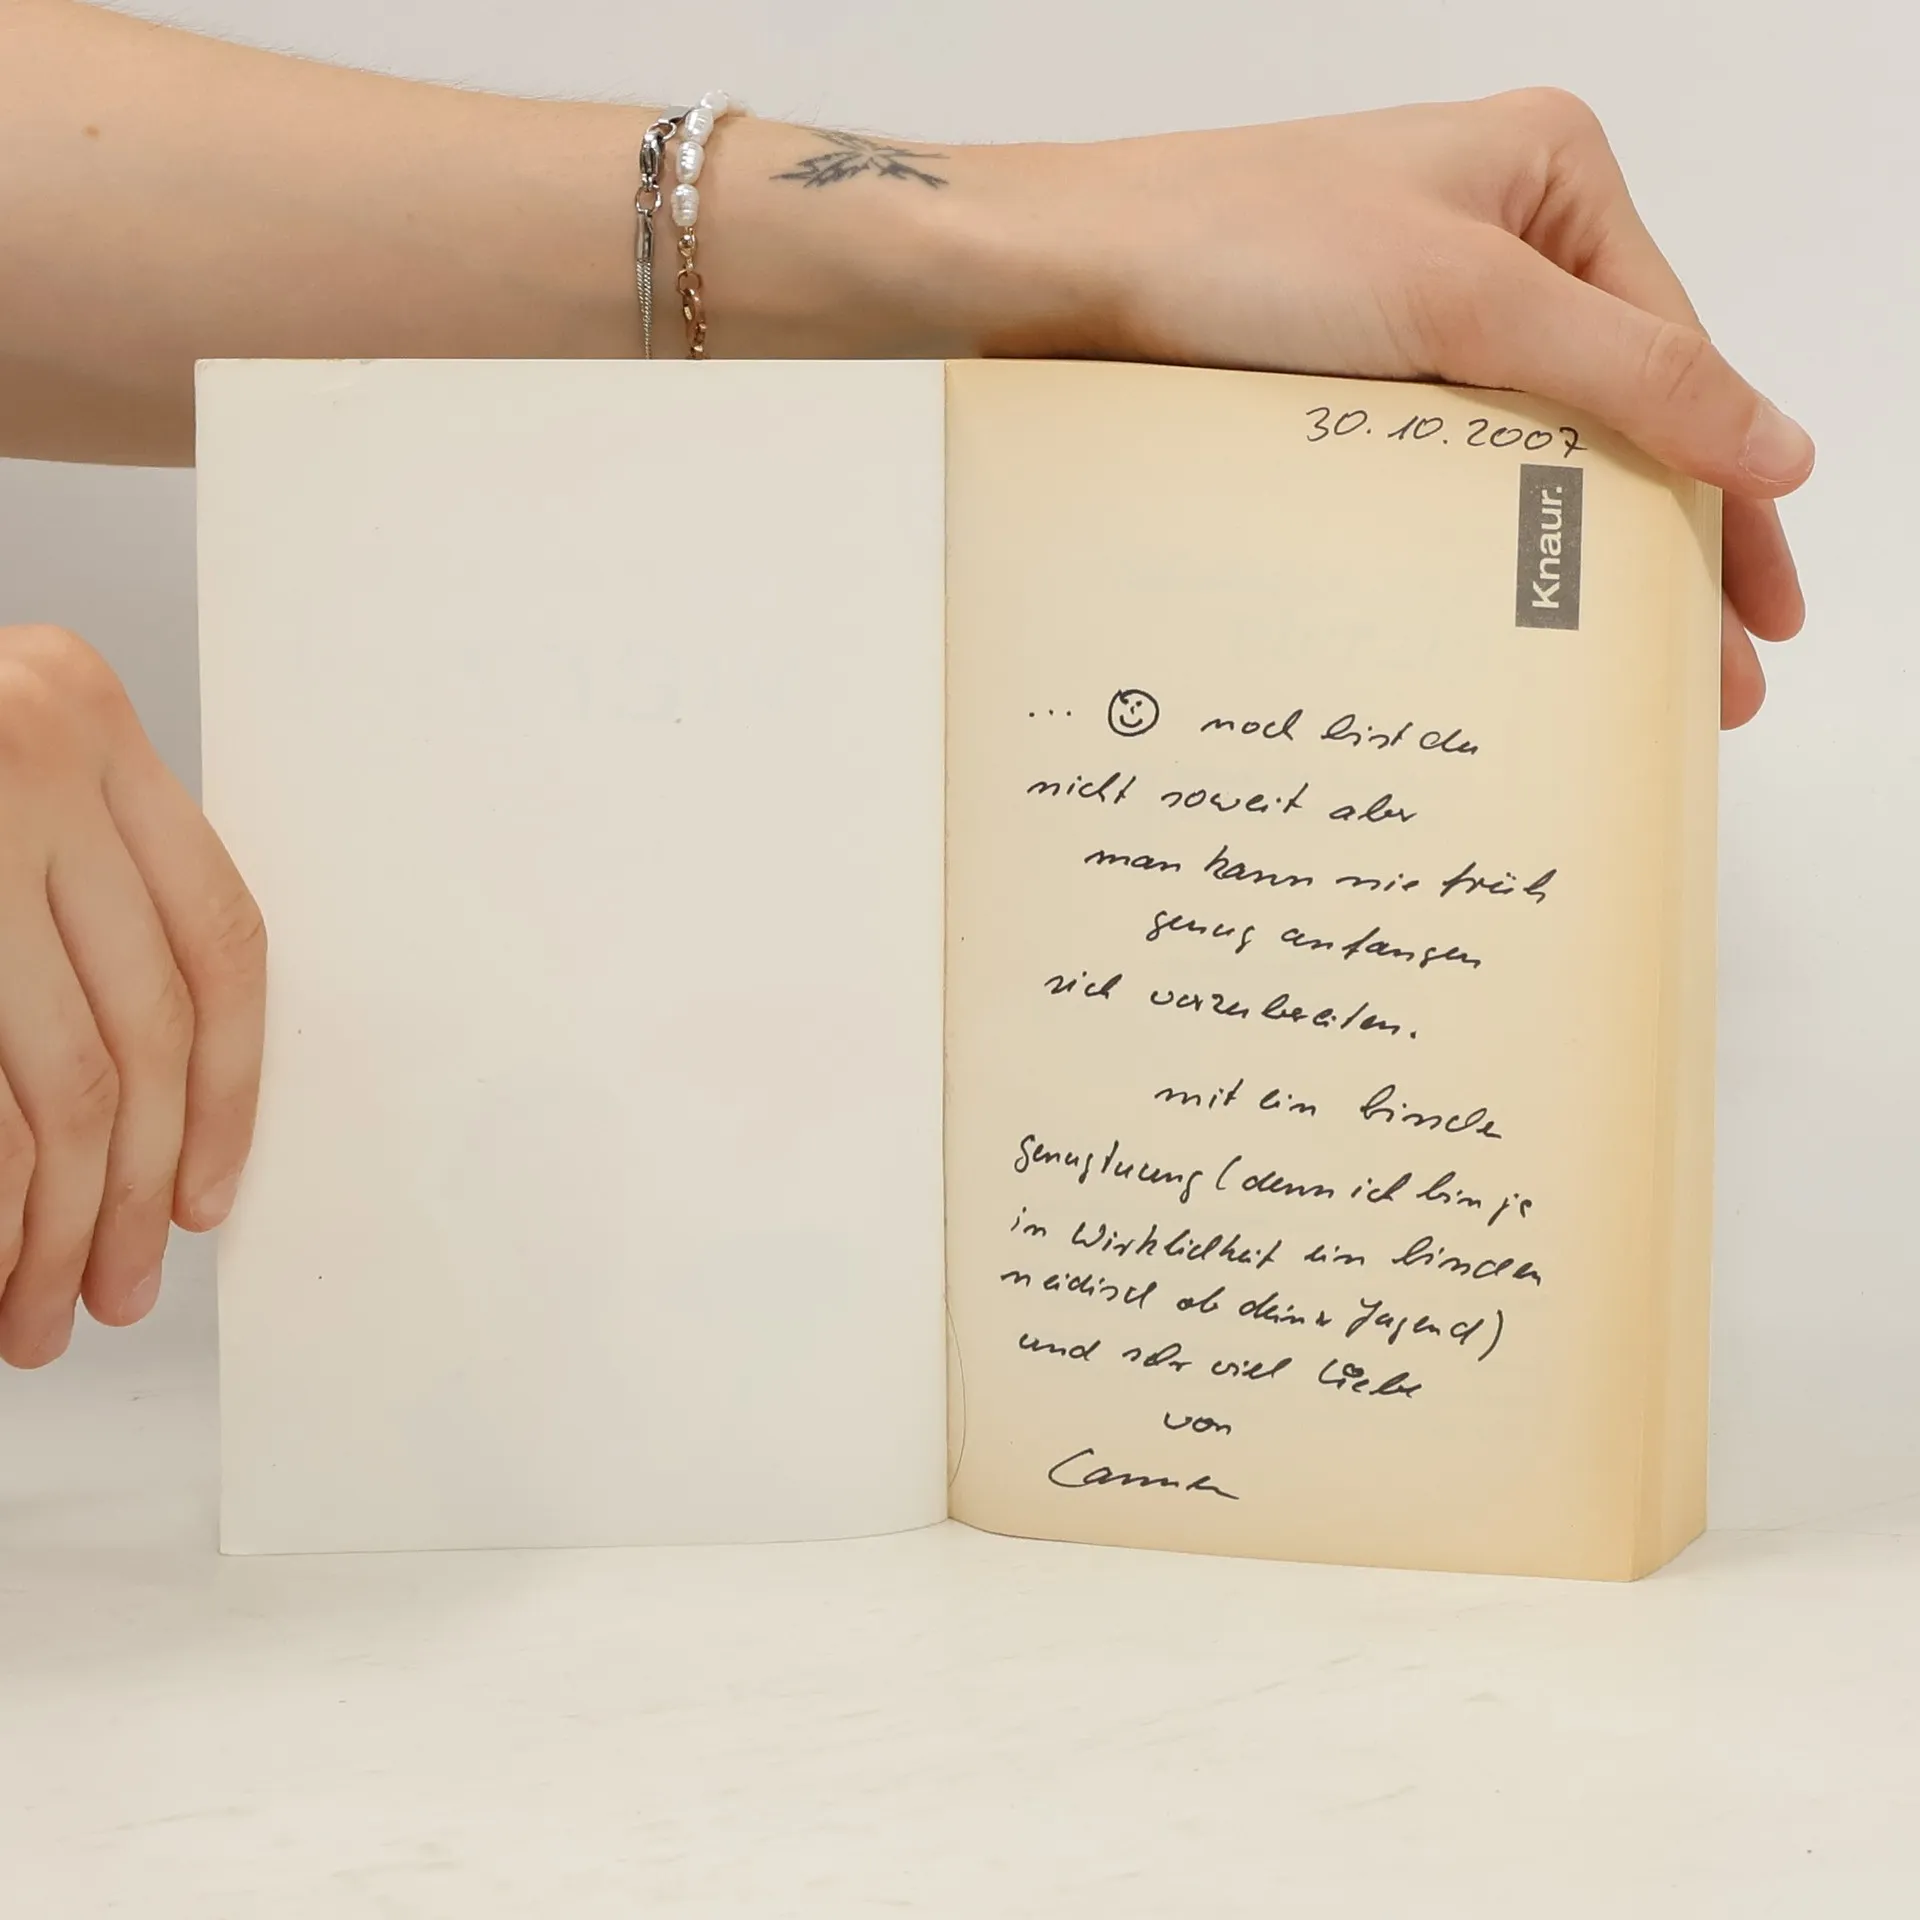 30.10.2007
Knaur.
... noch bist du
nicht soweit aber
man kann nie früh
genug anfangen
sich vorzubereiten.
mit ein bissche
genugtuung (denn ich bin ja
in Wirklichkeit ein bisschen
neidisch ob deiner Jugend)
und sehr viel Liebe
von
Carmen